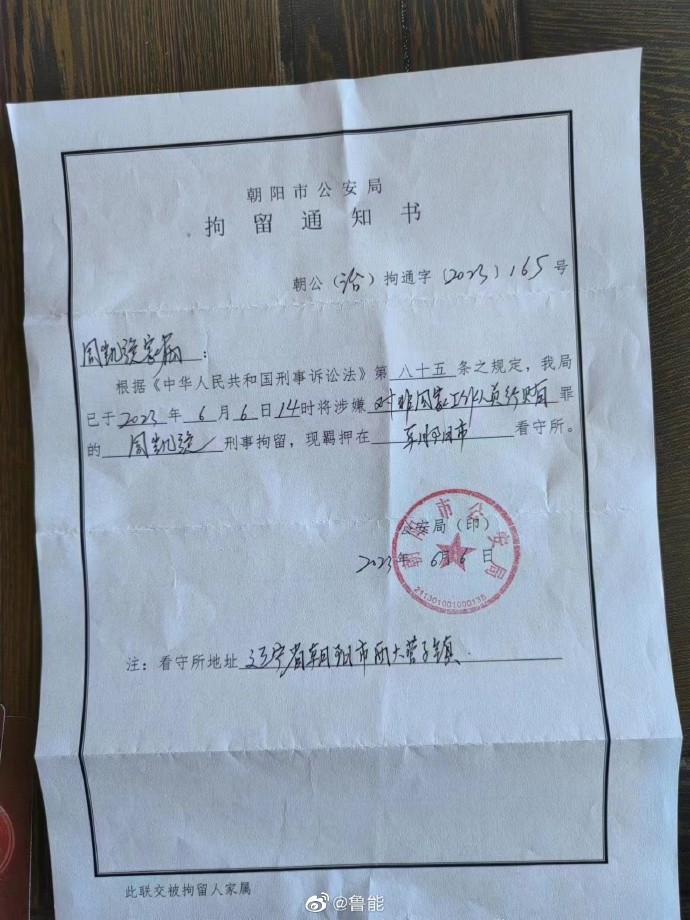 朝阳市公安局
拘留通知书
朝公（治）拘通字〔2023〕165号
周凯旋家属：
根据《中华人民共和国刑事诉讼法》第八十五条之规定，我局
已于2023年6月6日14时将涉嫌对非国家工作人员行贿罪
的周凯旋刑事拘留，现羁押在朝阳市看守所。
公安局（印）
2023年6月6日
朝阳市公安局
211301001000135
注：看守所地址辽宁省朝阳市西大营子镇
此联交被拘留人家属
@鲁能